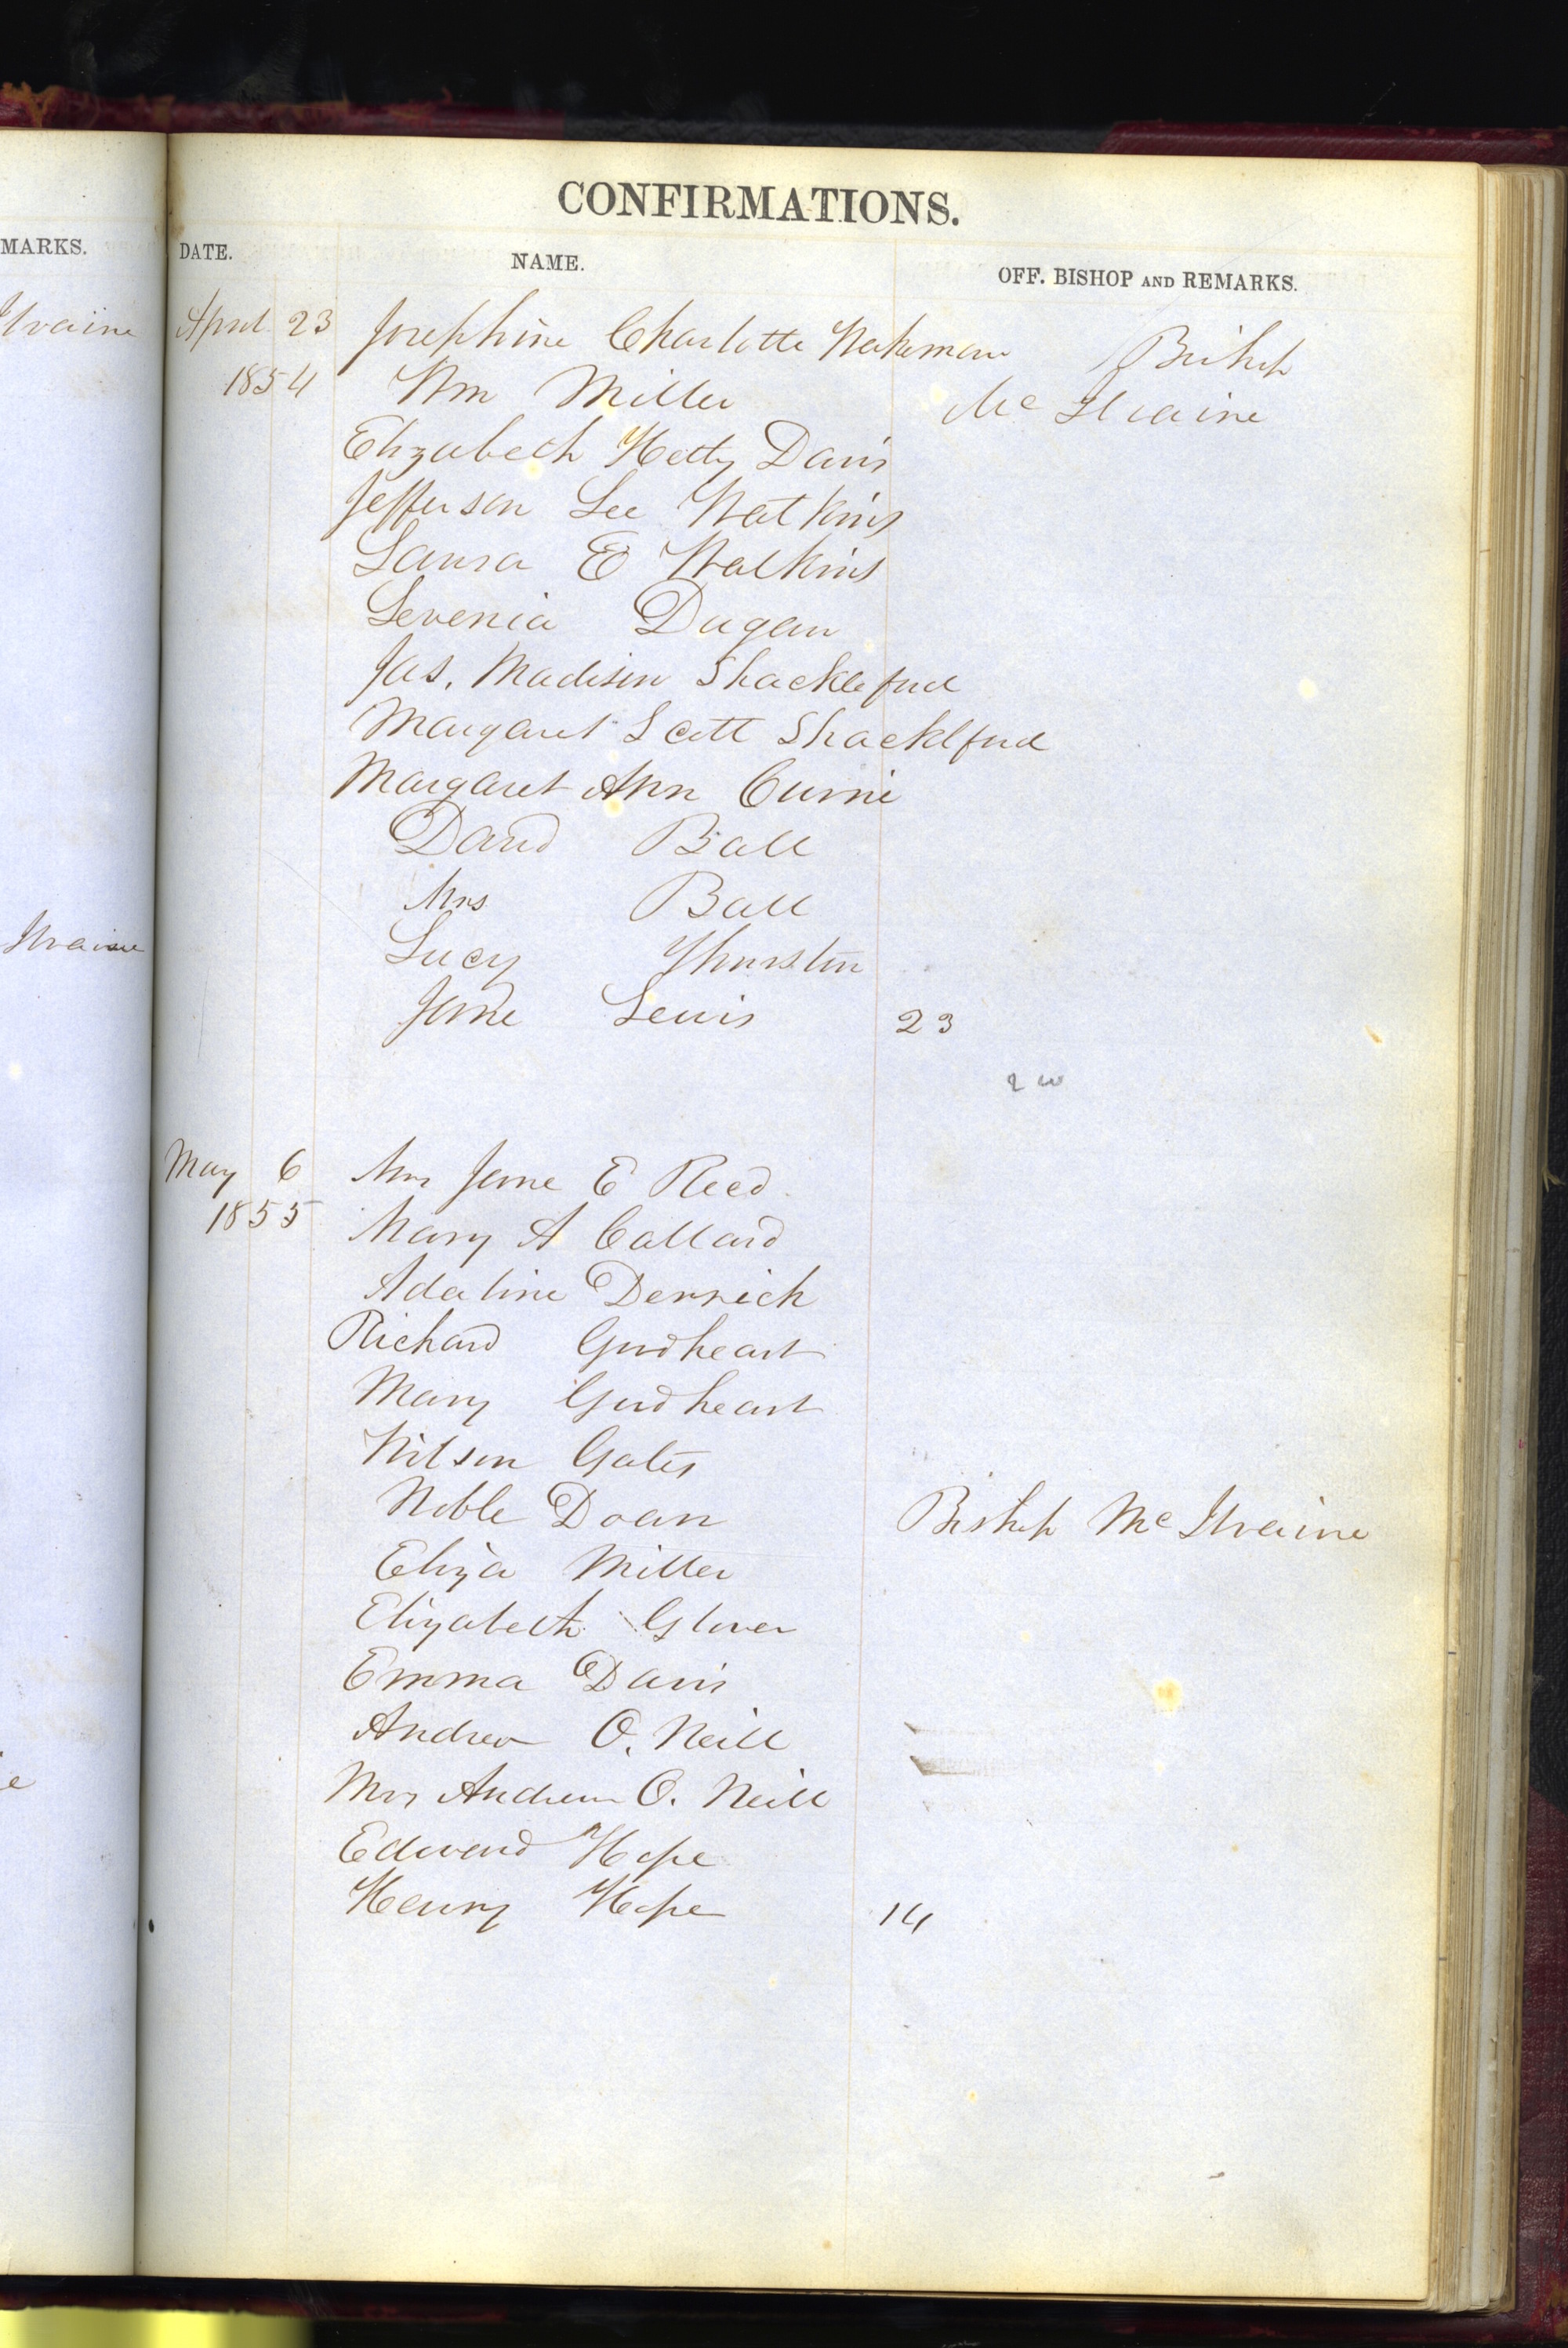 CONFIRMATIONS.
MARKS.
DATE. NAME. OFF. BISHOP AND REMARKS.
Ilvaine
April 23 Josephine Charlotte Wakeman Bishop
1854 Wm Miller Mc Ilvaine
Elizabeth Hetty Davis
Jefferson Lee Watkins
Laura E Watkins
Levenia Dugan
Jas. Madison Shackleford
Margaret Scott Shacklford
Margaret Ann Currie
David Ball
Mrs Ball
Ilvaine
Lucy Thurston
Jane Lewis 23
May 6 Mrs Jane E Reed
1855 Mary A Collard
Adaline Derrick
Richard Goodheart
Mary Goodheart
Wilson Gates
Noble Doan Bishop Mc Ilvaine
Eliza Miller
Elizabeth Glover
Emma Davis
Andrew O. Neill
e
Mrs Andrew O. Neill
Edward Hope
Henry Hope 14